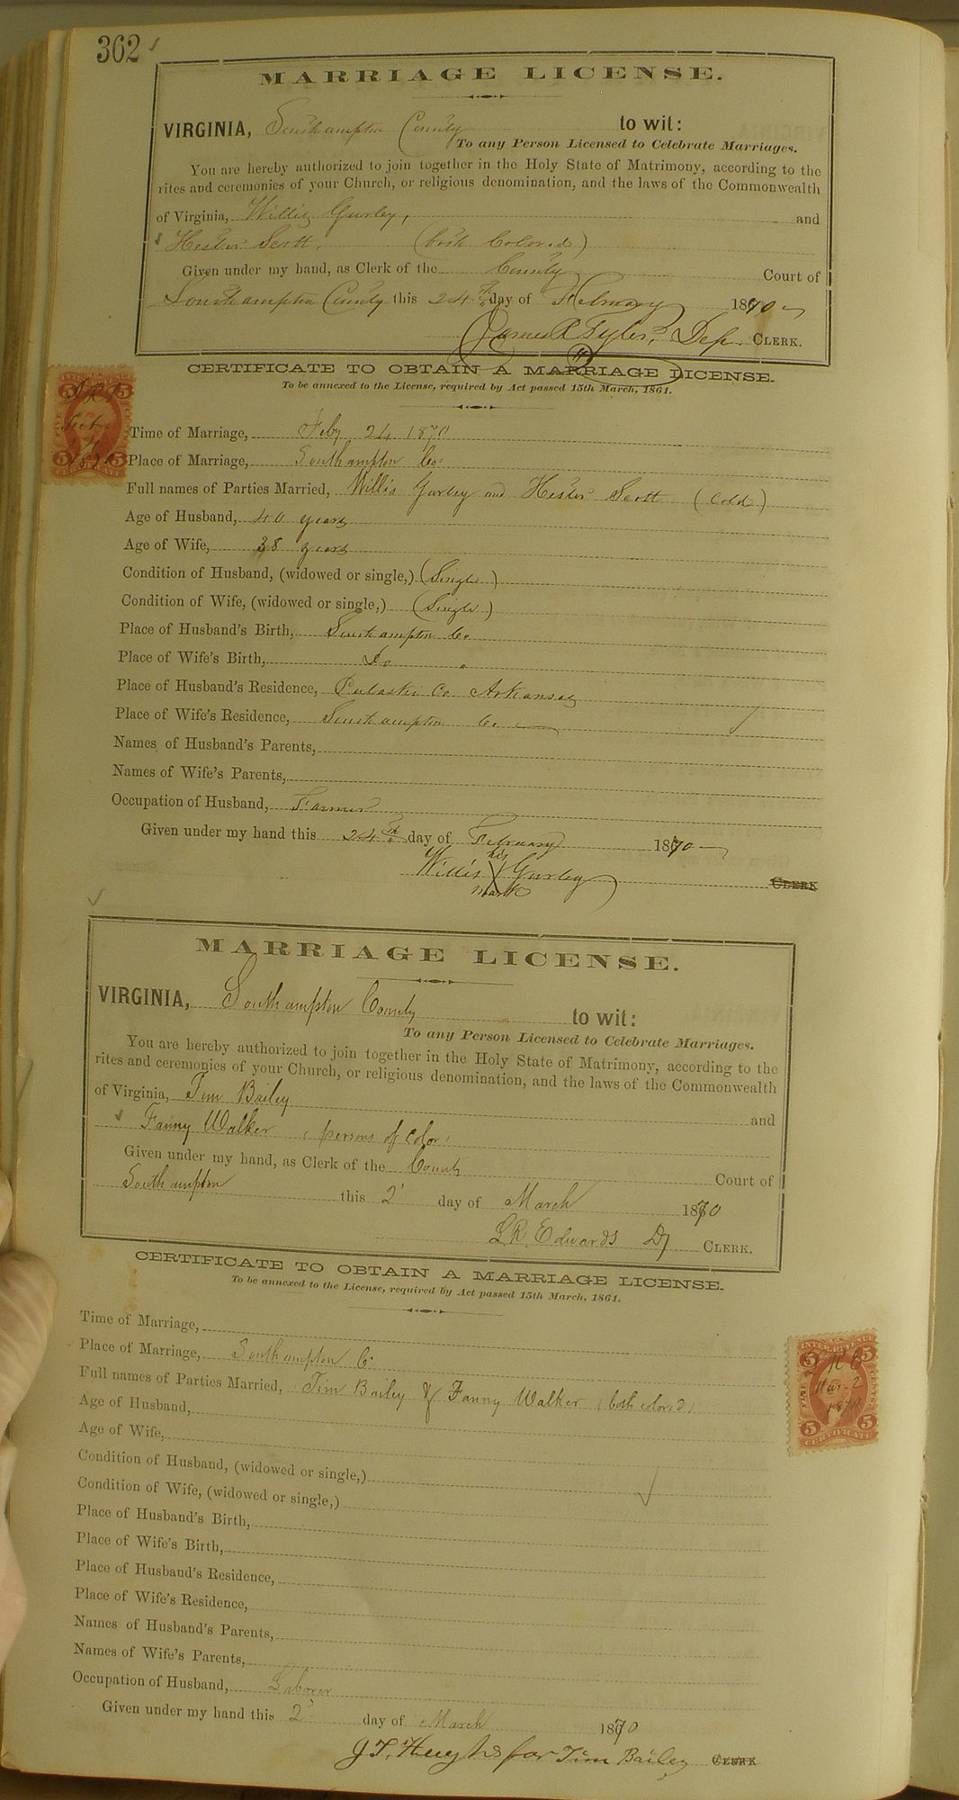 362
MARRIAGE LICENSE.
VIRGINIA, Southampton County to wit:
To any Person Licensed to Celebrate Marriages.
You are hereby authorized to join together in the Holy State of Matrimony, according to the
rites and ceremonies of your Church, or religious denomination, and the laws of the Commonwealth
of Virginia, Willis Gurley, and
Hester Scott. (both Colored)
Given under my hand, as Clerk of the County Court of
Southampton County this 24th day of February 1870
James R Tyler, Dep. CLERK.
CERTIFICATE TO OBTAIN A MARRIAGE LICENSE.
To be annexed to the License, required by Act passed 15th March, 1861.
Time of Marriage, Feby 24 1870
Place of Marriage, Southampton Co.
Full names of Parties Married, Willis Gurley and Hester Scott (Cold)
Age of Husband, 40 years
Age of Wife, 38 years
Condition of Husband, (widowed or single,) (Single)
Condition of Wife, (widowed or single,) (Single)
Place of Husband's Birth, Southampton Co.
Place of Wife's Birth, Do
Place of Husband's Residence, Pulaski Co Arkansas
Place of Wife's Residence, Southampton Co.
Names of Husband's Parents,
Names of Wife's Parents,
Occupation of Husband, Farmer
Given under my hand this 24th day of February 1870
his
Willis X Gurley CLERK
mark
MARRIAGE LICENSE.
VIRGINIA, Southampton County to wit:
To any Person Licensed to Celebrate Marriages.
You are hereby authorized to join together in the Holy State of Matrimony, according to the
rites and ceremonies of your Church, or religious denomination, and the laws of the Commonwealth
of Virginia, Tim Bailey and
Fanny Walker (persons of color)
Given under my hand, as Clerk of the County Court of
Southampton this 2' day of March 1870
L.R. Edwards Dy CLERK.
CERTIFICATE TO OBTAIN A MARRIAGE LICENSE.
To be annexed to the License, required by Act passed 15th March, 1861.
Time of Marriage,
Place of Marriage, Southampton Co
Full names of Parties Married, Tim Bailey & Fanny Walker (both colored)
Age of Husband,
Age of Wife,
Condition of Husband, (widowed or single,)
Condition of Wife, (widowed or single,)
Place of Husband's Birth,
Place of Wife's Birth,
Place of Husband's Residence,
Place of Wife's Residence,
Names of Husband's Parents,
Names of Wife's Parents,
Occupation of Husband, Laborer
Given under my hand this 2' day of March 1870
J.T. Hughs for Tim Bailey CLERK
5 5
Mar. 2
1870
5 5
CERTIFICATE